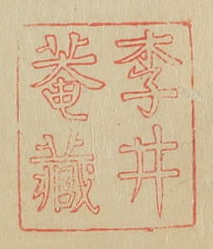 李井
菴藏